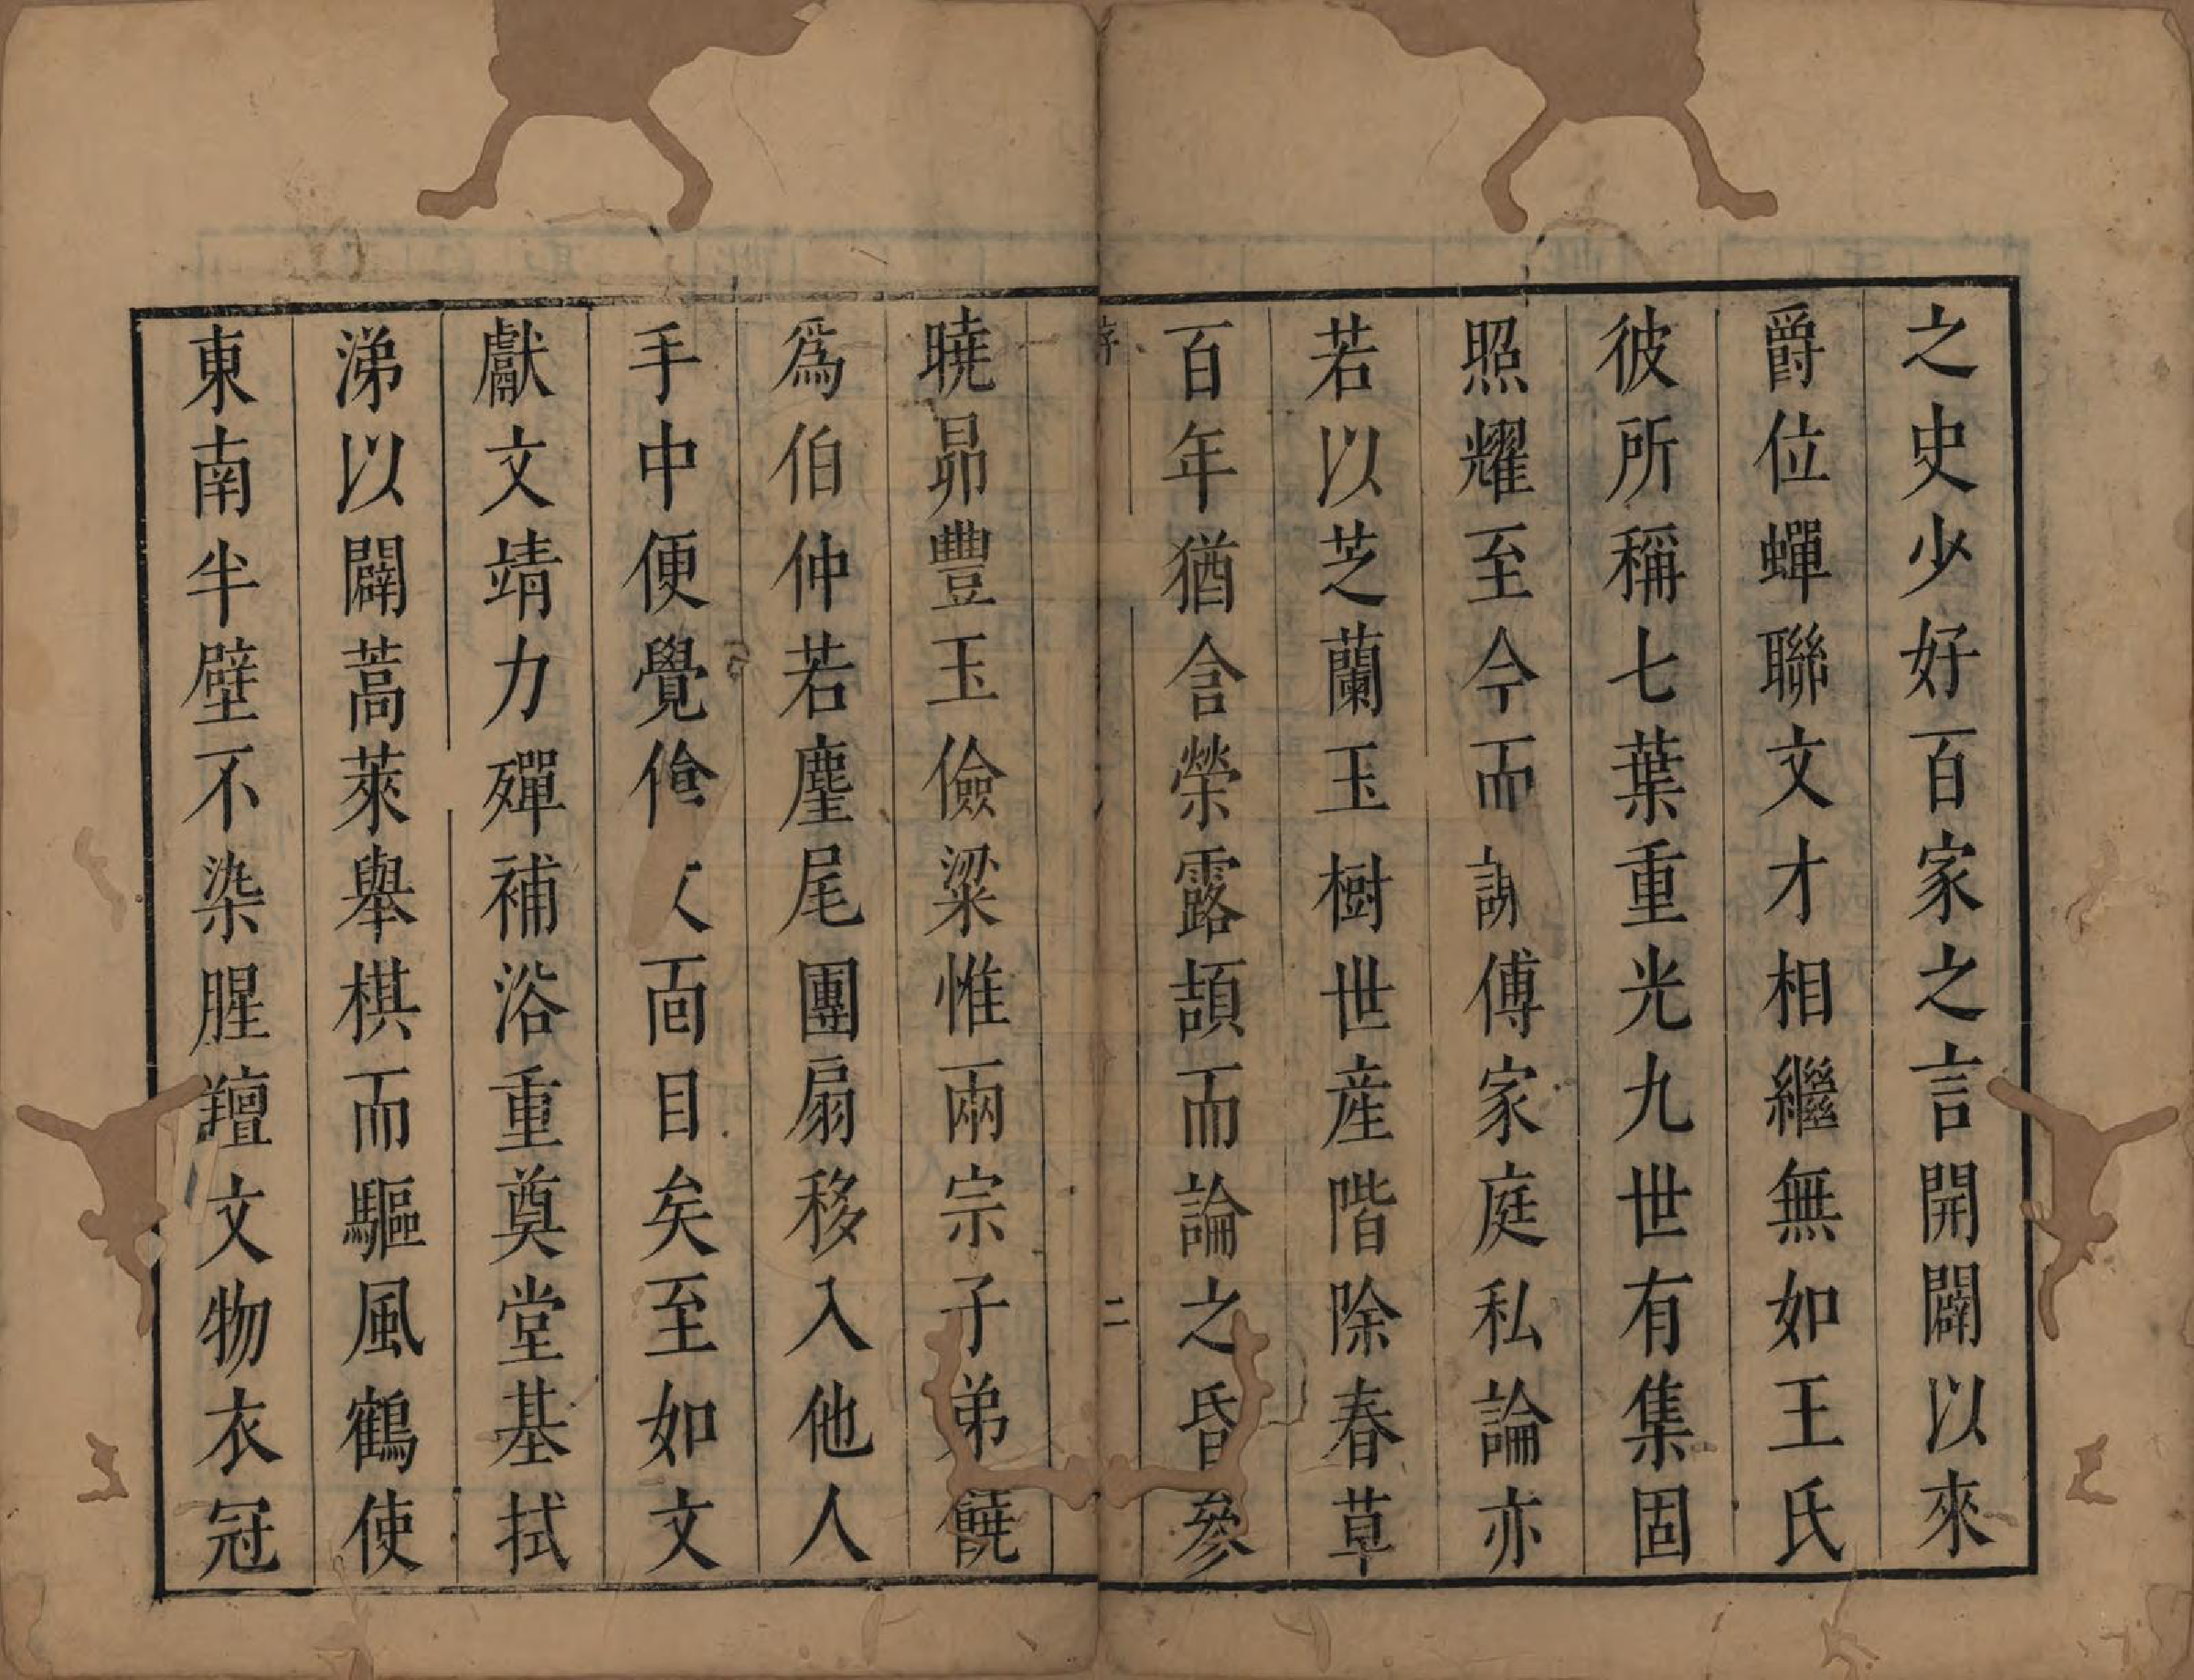 之史少好百家之言開闢以來
爵位蟬聯文才相繼無如王氏
彼所稱七葉重光九世有集固
照耀至今而謝傅家庭私論亦
若以芝蘭玉樹世産階除春草
百年猶含榮露頡而論之昏參
序
二
曉昴豐玉儉粱惟兩宗子弟饒
爲伯仲若麈尾團扇移入他人
手中便覺傖父面目矣至如文
獻文靖力殫補浴重奠堂基拭
涕以闢蒿萊舉棋而驅風鶴使
東南半壁不染腥羶文物衣冠